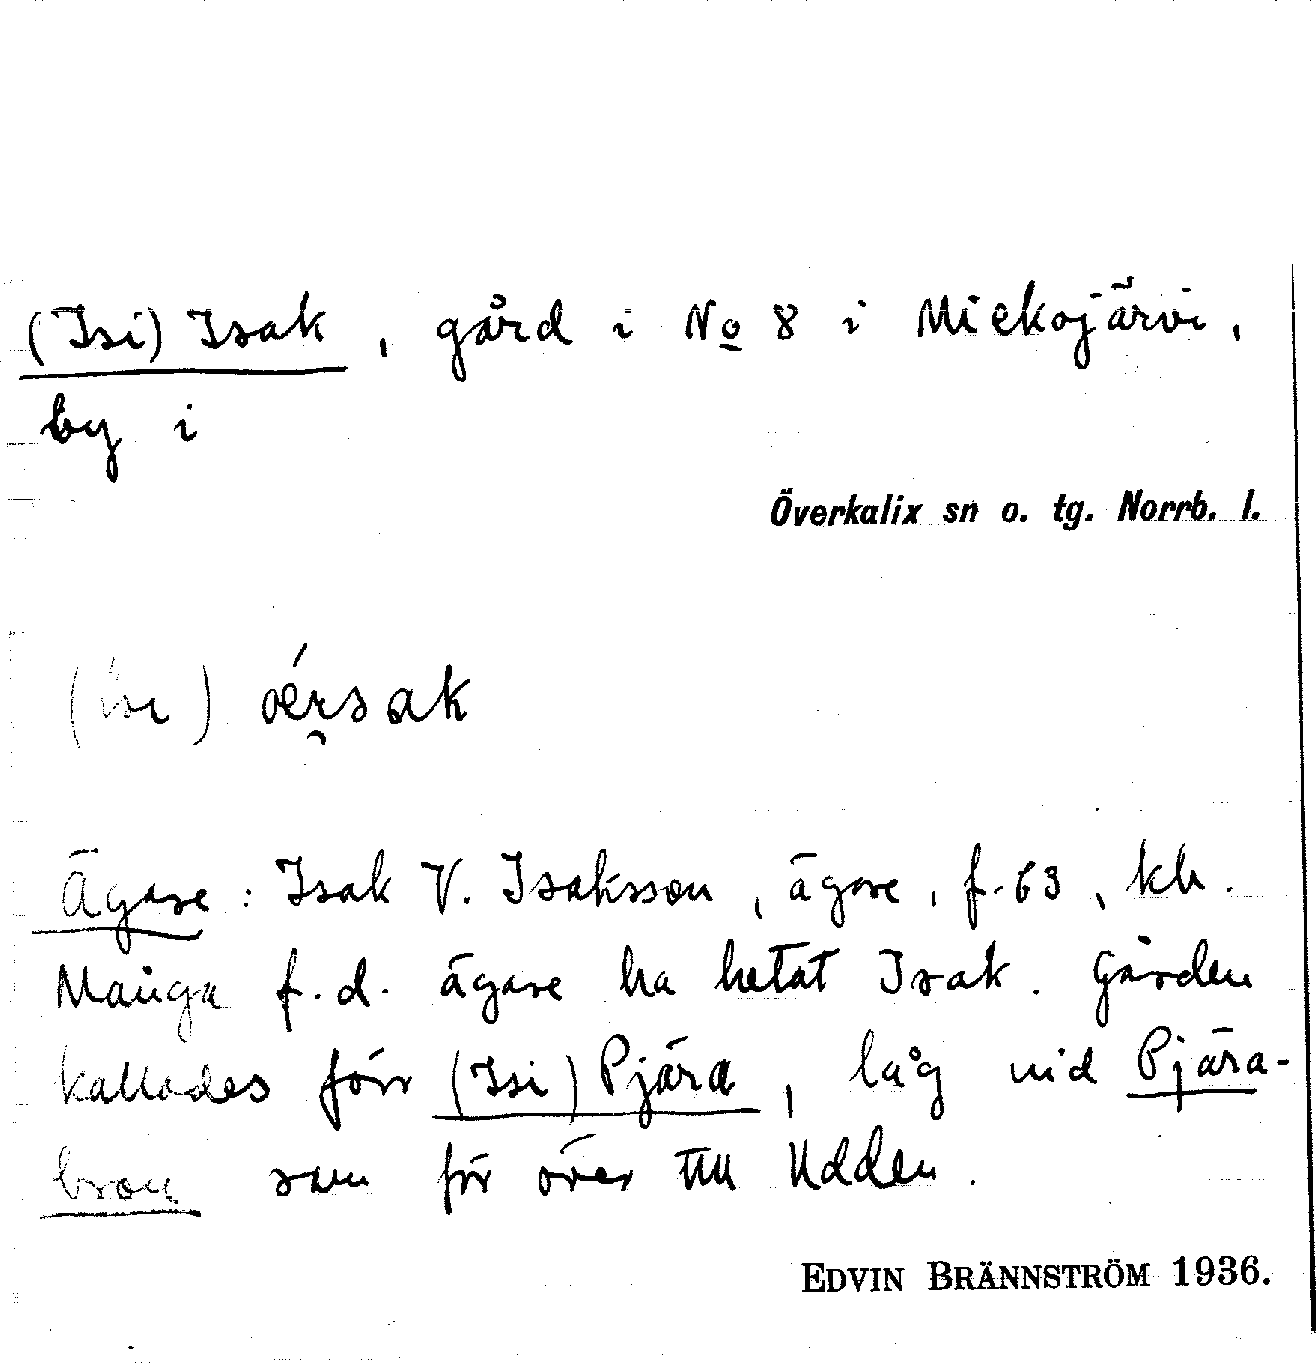 (Isi) Isak, gård i No 8 i Mickojärvi,
by i
Överkalix sn o. tg. Norrb. l.
(isi) óersak
Ägare: Isak V. Isaksson, ägare, f. 63, kh.
Många f.d. ägare ha hetat Isak. Gården
kallades förr (Isi) Pjära, låg vid Pjära-
bron som för över till Udden.
EDVIN BRÄNNSTRÖM 1936.